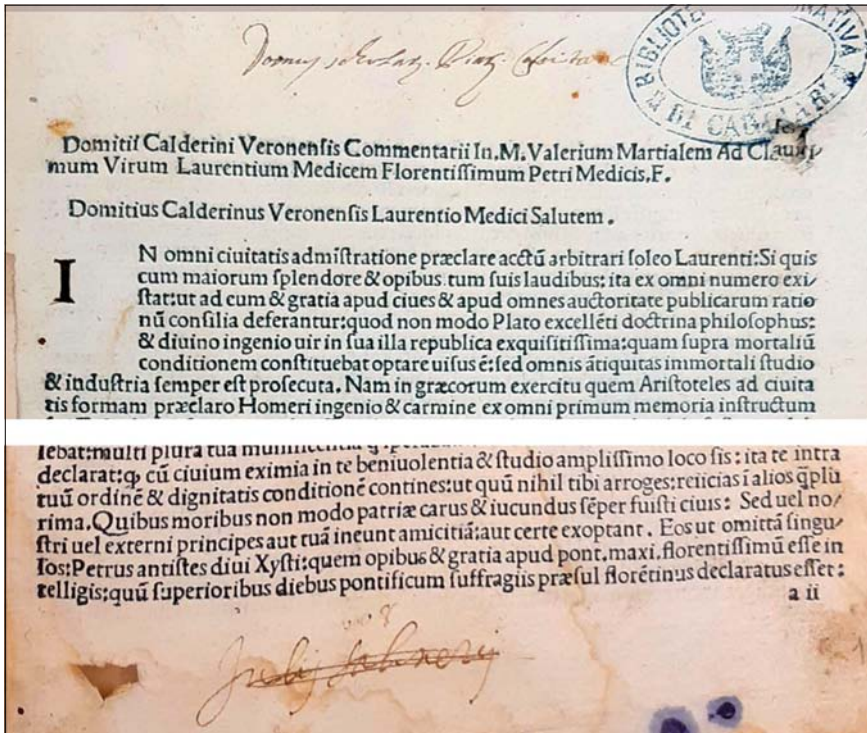 BIBLIOTE
DI CAGLIARI
Domitii Calderini Veronenſis Commentarii In.M.Valerium Martialem Ad Clariſſi
mum Virum Laurentium Medicem Florentiſſimum Petri Medicis.F.
Domitius Calderinus Veronenſis Laurentio Medici Salutem .
IN omni ciuitatis admiſtratione præclare acctū arbitrari ſoleo Laurenti:Si quis
cum maiorum ſplendore & opibus tum ſuis laudibus: ita ex omni numero exi⸗
ſtat:ut ad eum & gratia apud ciues & apud omnes auctoritate publicarum ratio
nū conſilia deferantur:quod non modo Plato excellēti doctrina philoſophus:
& diuino ingenio uir in ſua illa republica exquiſitiſſima:quam ſupra mortaliū
conditionem conſtituebat optare uiſus ē:ſed omnis ātiquitas immortali ſtudio
& induſtria ſemper eſt proſecuta. Nam in græcorum exercitu quem Ariſtoteles ad ciuita
tis formam præclaro Homeri ingenio & carmine ex omni primum memoria inſtructum
lebat:multi plura tua
declarat:ꝙ cū ciuium eximia in te beniuolentia & ſtudio ampliſſimo loco ſis: ita te intra
tuū ordinē & dignitatis conditionē contines:ut quū nihil tibi arroges:reiicias ī alios q̄plu
rima.Quibus moribus non modo patriæ carus & iucundus ſēper fuiſti ciuis: Sed uel no⸗
ſtri uel externi principes aut tuā ineunt amicitiā:aut certe exoptant. Eos ut omittā ſingu⸗
los:Petrus antiſtes diui Xyſti:quem opibus & gratia apud pont.maxi.florentiſſimū eſſe in
telligis:quū ſuperioribus diebus pontificum ſuffragiis præſul florētinus declaratus eſſet:
a ii